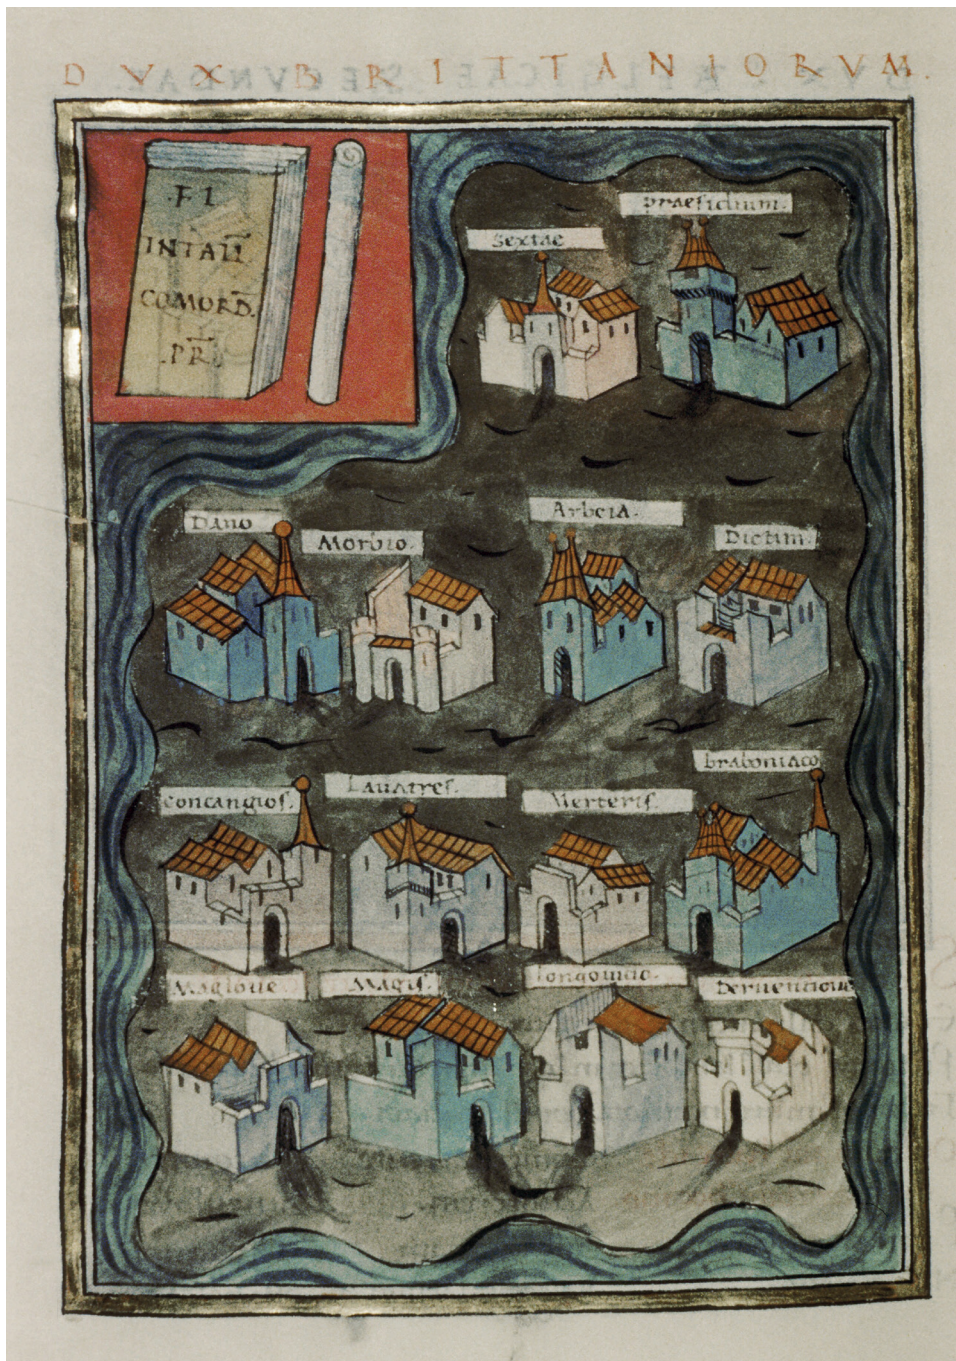 DVX BRITTANIORVM.
.FL
INTALL
COMORD.
.PR
Sextae
praesidium.
Dano
Morbio.
Arbeia.
Dictim.
Concangios.
Lauatres.
Verteris.
braboniaco
Magloue
Magis.
longouicio.
Deruentione